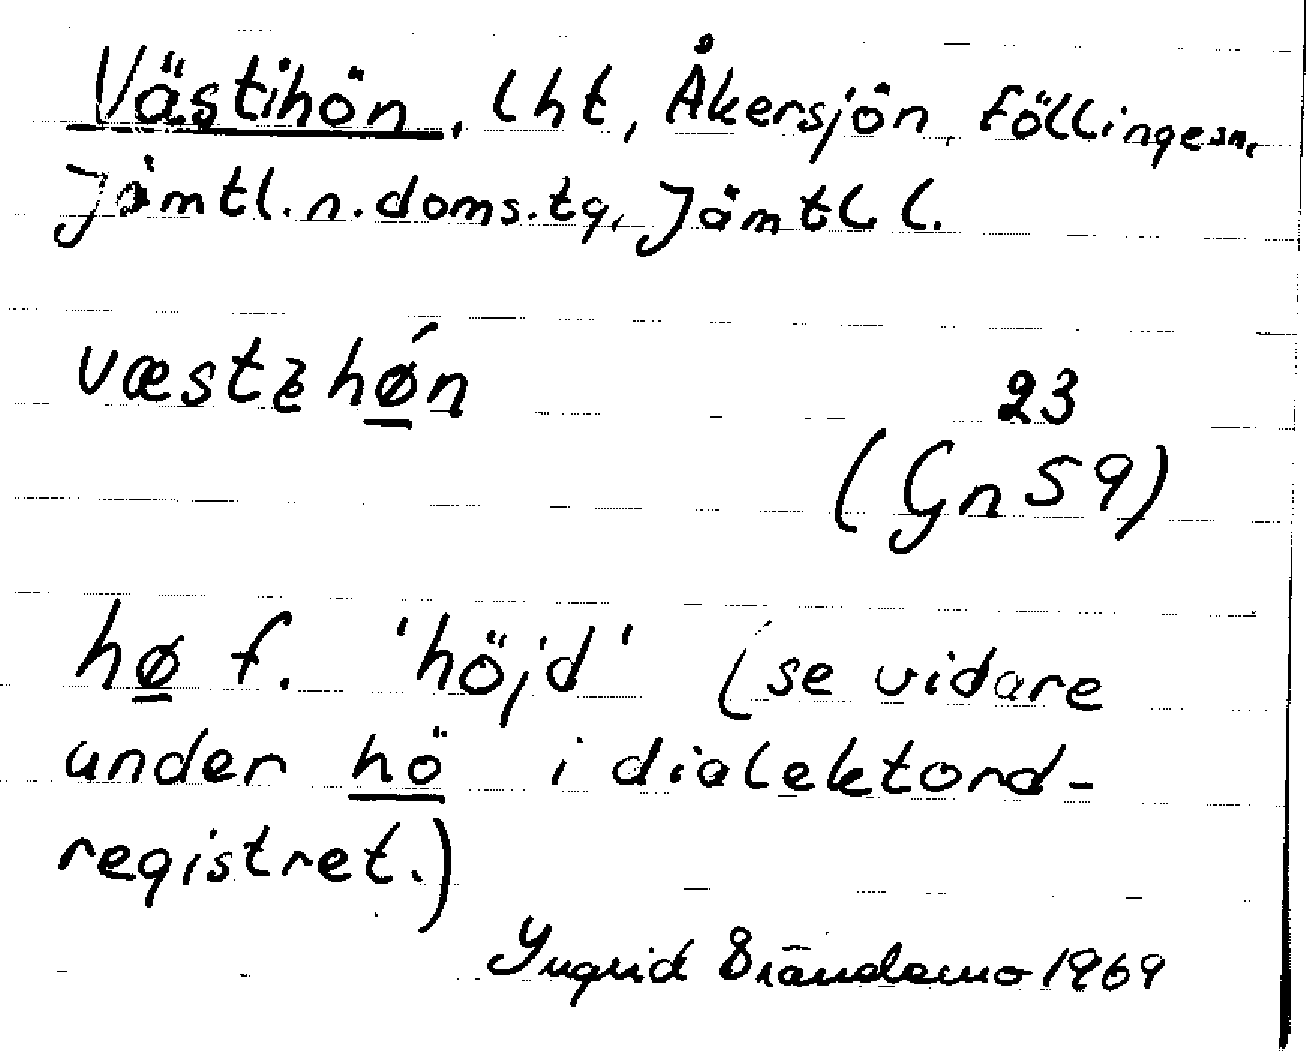 Västihön, lht, Åkersjön, Föllinge sn,
Jämtl. n. doms. tg, Jämtl. l.
væstᵹhǿn
23
(Gn 59)
hø f. 'höjd' (se vidare
under hö i dialektord-
registret.)
Yngrid Brändemo 1969